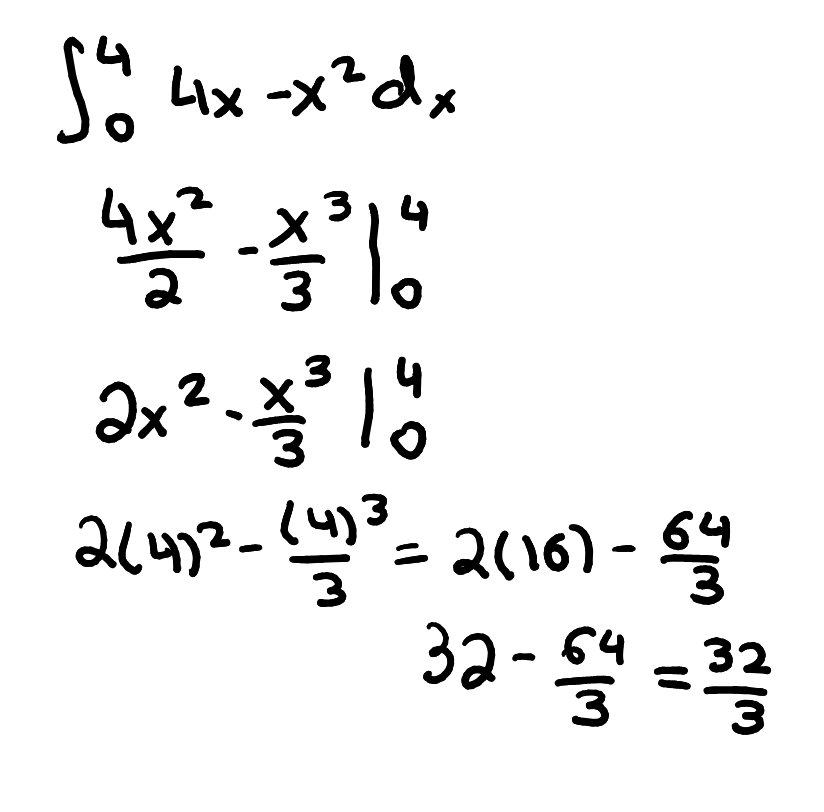 ∫₀⁴ 4x - x² dx
4x²/2 - x³/3 |₀⁴
2x² - x³/3 |₀⁴
2(4)² - (4)³/3 = 2(16) - 64/3
32 - 64/3 = 32/3